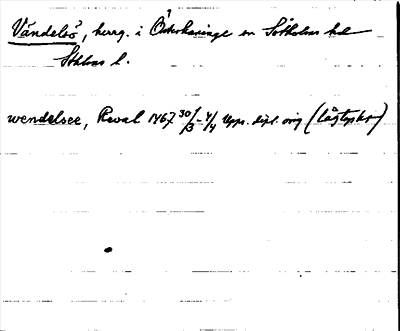 Vändelsö, herrg. i Österhaninge sn Sotholms hd
Sthlms l.
wendelsee, Reval 1467 30/3-4/4 Upps. dipl. orig (lågtyska)